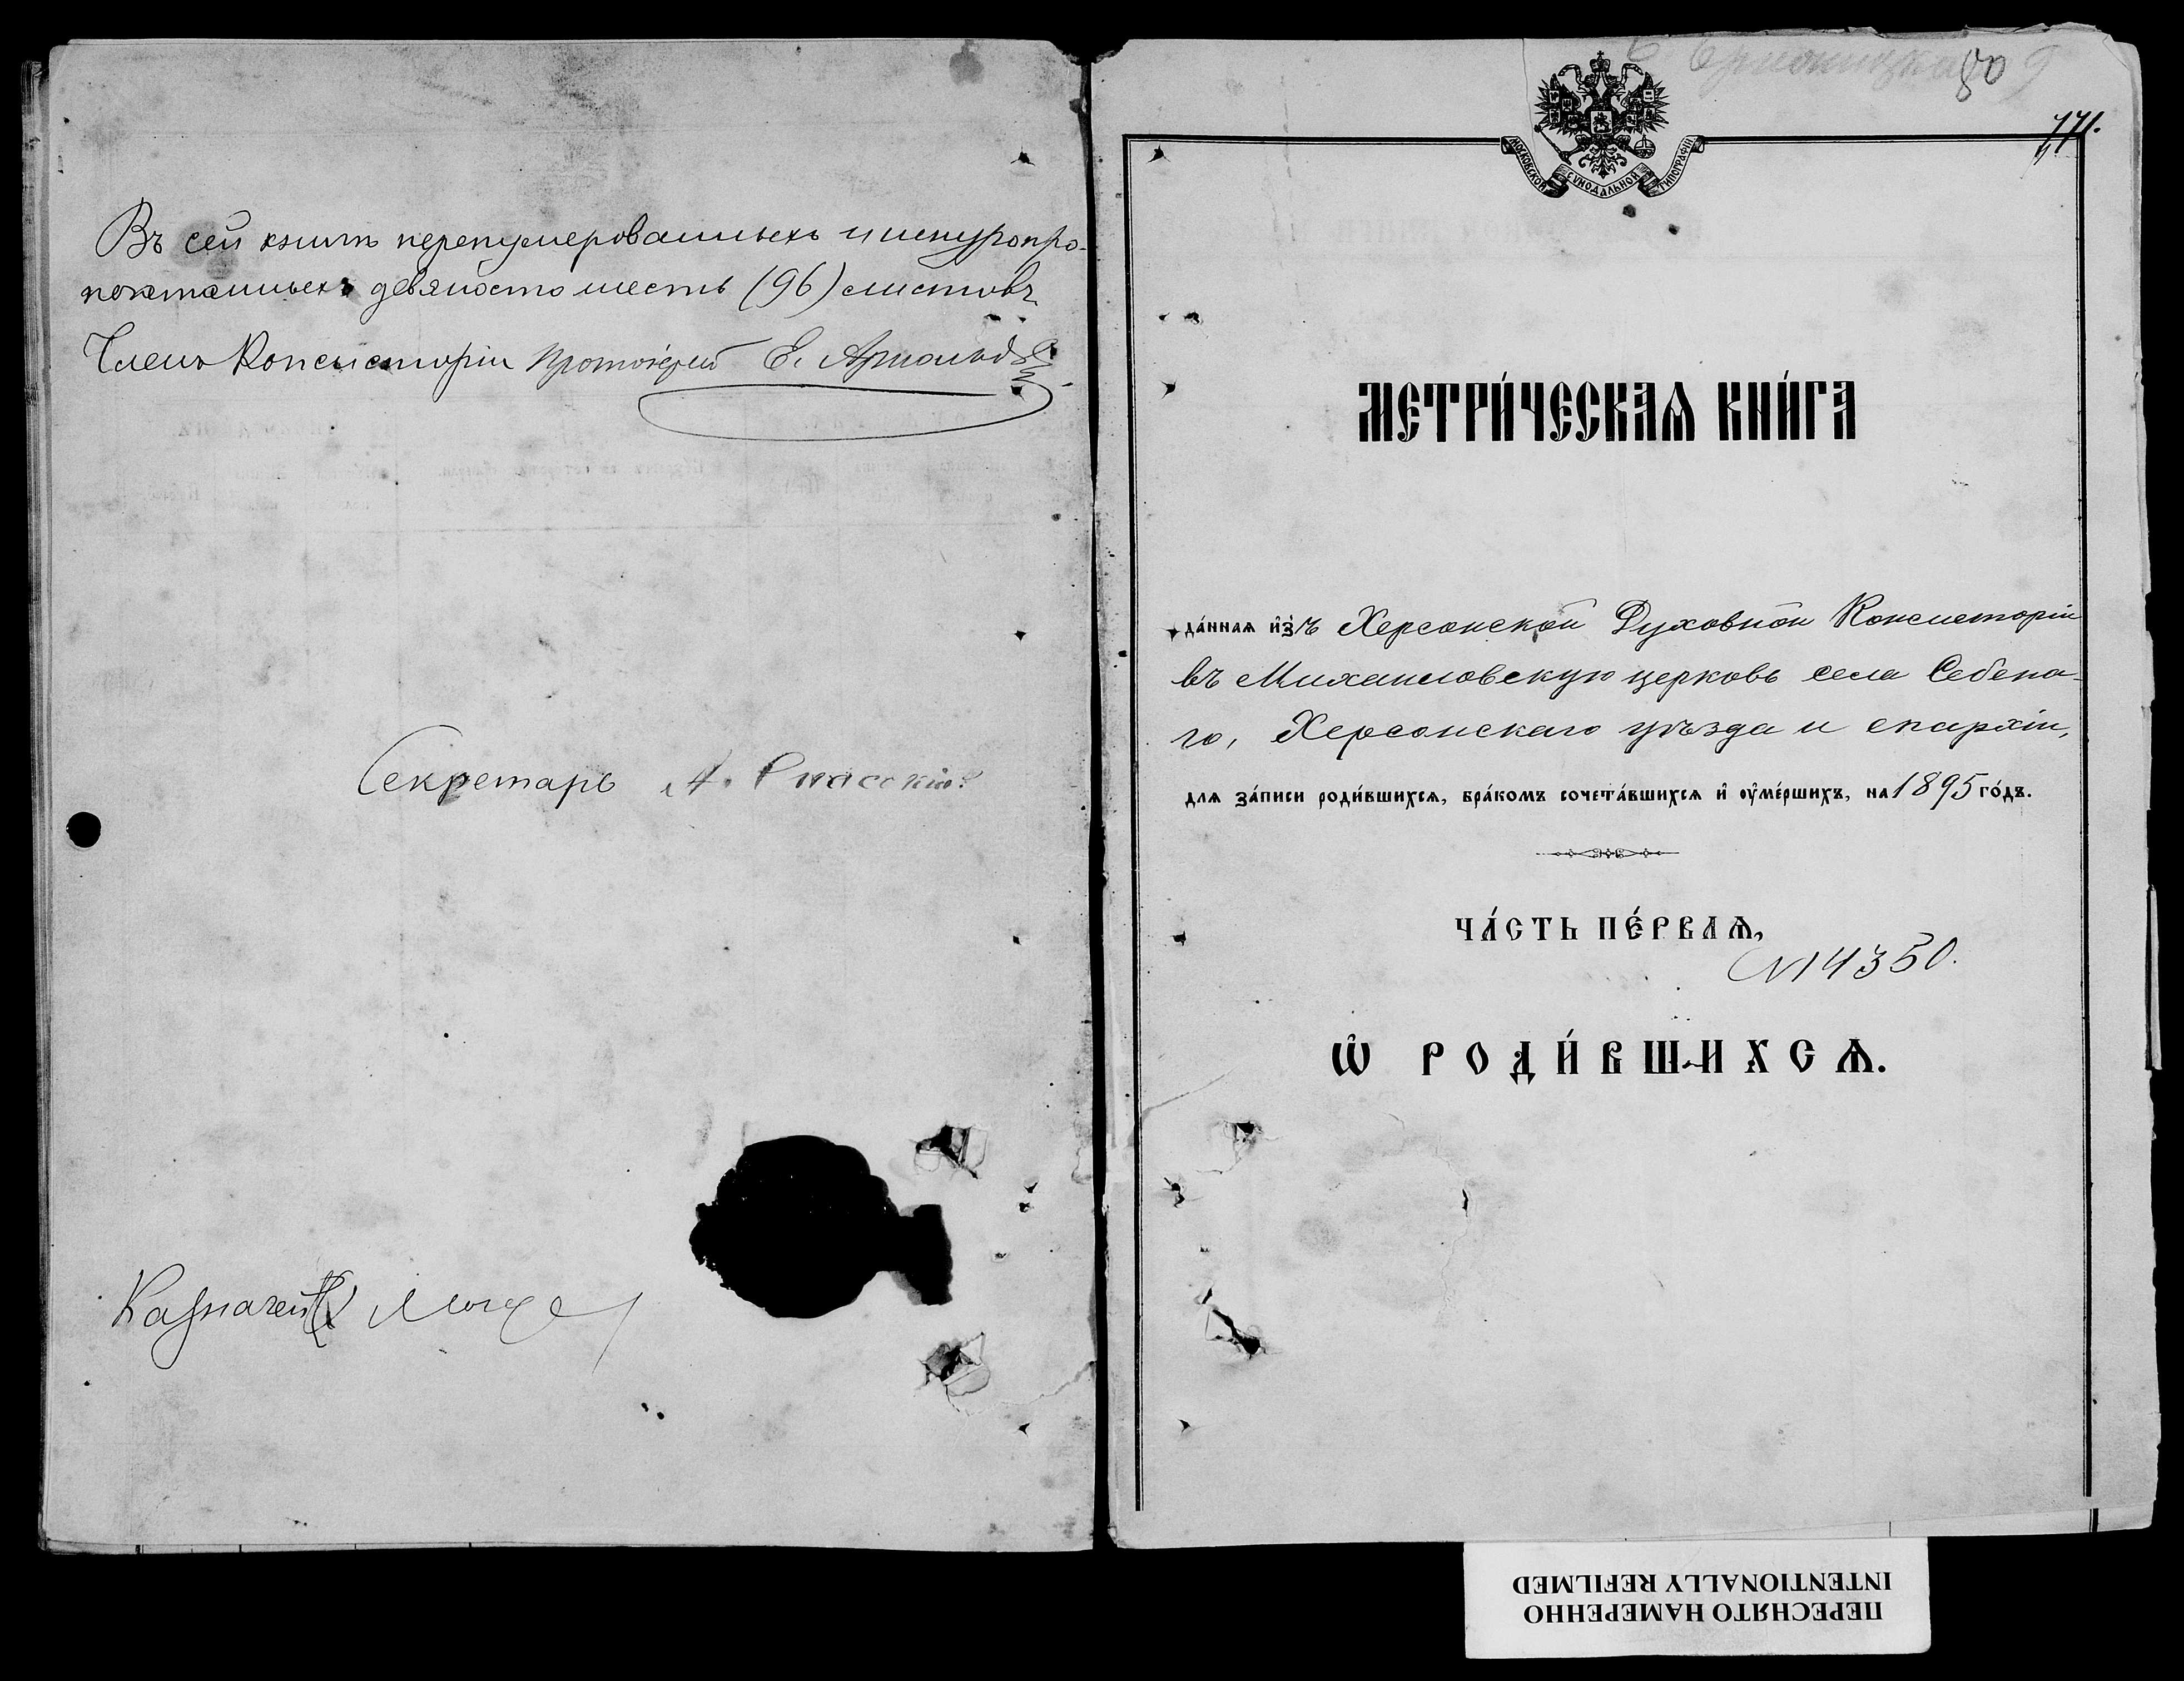 Въ сей книгѣ перенумерованныхъ и шнуропро-
покатанныхъ девяносто шесть (96) листовъ
Членъ Консисторіи Протоіерей Е. Арнольдъ
Секретарь А. Спасскій
Казначей
809
771.
МОСКОВСКОЙ СѴНОДАЛЬНОЙ ТИПОГРАФІИ
МЕТРИ́ЧЕСКАѦ КНИ́ГА
да́ннаѧ и҆зъ Херсонской Духовной Консисторіи
въ Михаиловскую церковь села Себена-
го, Херсонскаго уѣзда и епархіи,
длѧ за́писи роди́вшихсѧ, бра́комъ сочета́вшихсѧ и҆ ᲂу҆ме́ршихъ, на 1895 го́дъ.
ЧА́СТЬ ПЕ́РВАѦ,
№ 14350.
Ѡ҆ РОДИ́ВШИХСѦ.
ПЕРЕСНЯТО НАМЕРЕННО
INTENTIONALLY REFILMED